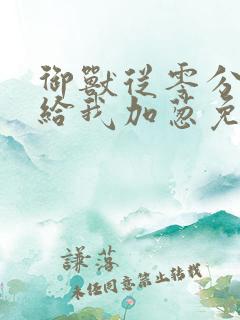 御獸從零分
給我加蔥免
謙落
未经同意禁止转载